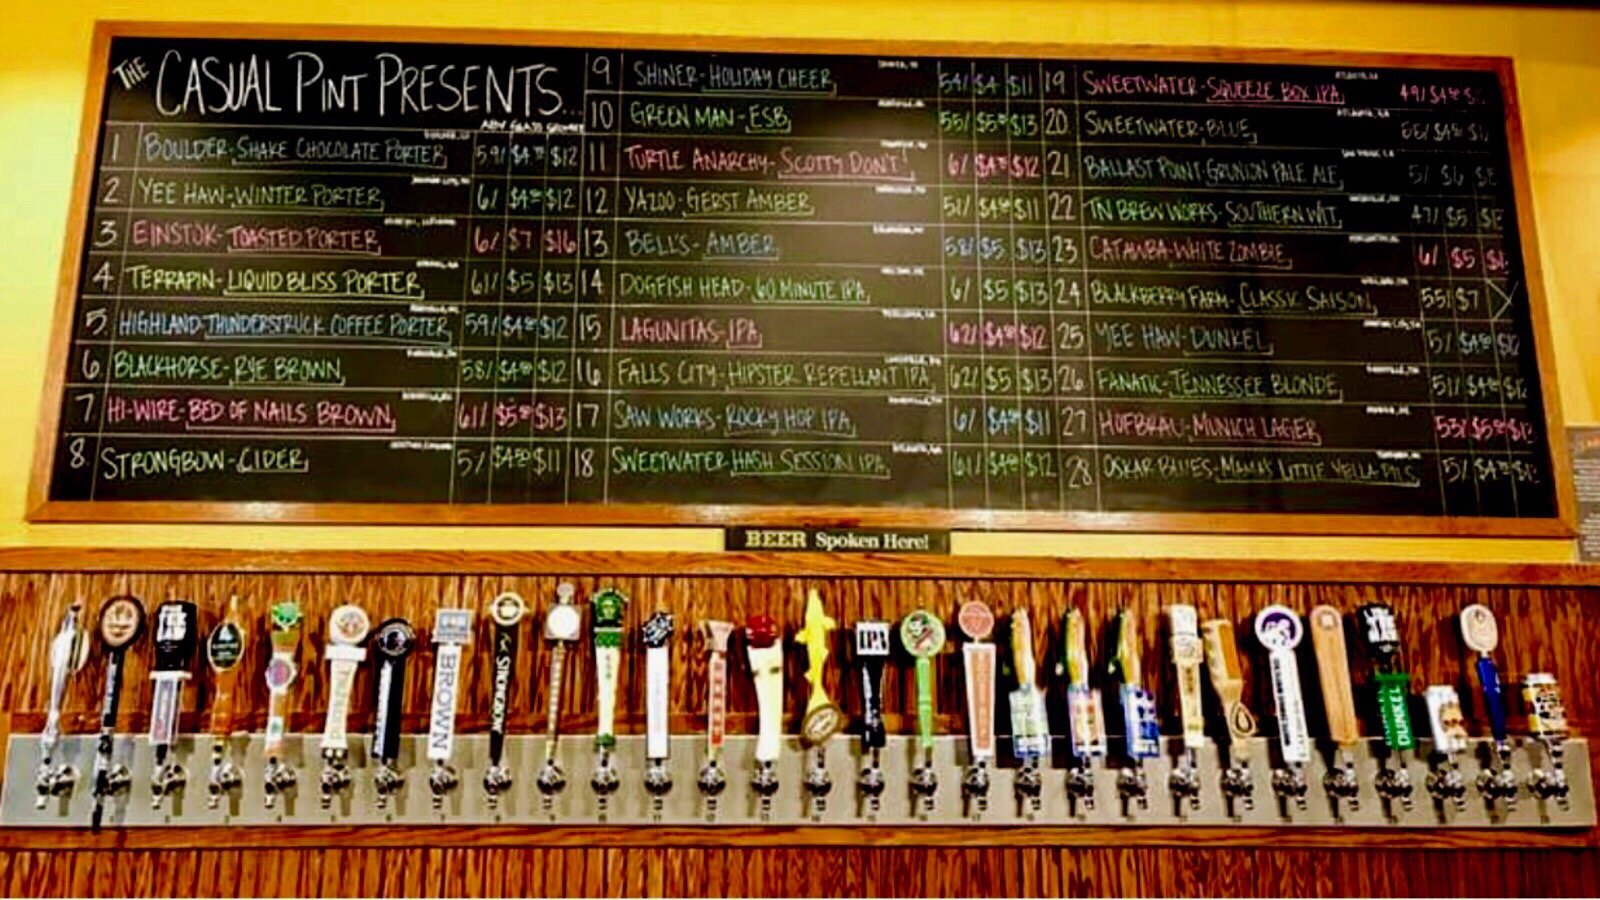 THE CASUAL PINT PRESENTS...
ABV GLASS GROWLER
1 BOULDER-SHAKE CHOCOLATE PORTER 59/ $4⁵⁰ $12
2 YEE HAW-WINTER PORTER 6/ $4⁵⁰ $12
3 EINSTOK-TOASTED PORTER 6/ $7 $16
4 TERRAPIN-LIQUID BLISS PORTER 61/ $5 $13
5 HIGHLAND-THUNDERSTRUCK COFFEE PORTER 59/ $4⁵⁰ $12
6 BLACKHORSE-RYE BROWN 58/ $4⁵⁰ $12
7 HI-WIRE-BED OF NAILS BROWN 61/ $5⁵⁰ $13
8 STRONGBOW-CIDER 5/ $4⁵⁰ $11
9 SHINER-HOLIDAY CHEER 54/ $4 $11
10 GREEN MAN-ESB 55/ $5⁵⁰ $13
11 TURTLE ANARCHY-SCOTTY DON'T! 6/ $4⁵⁰ $12
12 YAZOO-GERST AMBER 51/ $4⁵⁰ $11
13 BELL'S-AMBER 58/ $5 $13
14 DOGFISH HEAD-60 MINUTE IPA 6/ $5 $13
15 LAGUNITAS-IPA 62/ $4⁵⁰ $12
16 FALLS CITY-HIPSTER REPELLANT IPA 62/ $5 $13
17 SAW WORKS-ROCKY HOP IPA 6/ $4⁵⁰ $11
18 SWEETWATER HASH SESSION IPA 61/ $4⁵⁰ $12
19 SWEETWATER-SQUEEZE BOX IPA 49/ $4⁵⁰
20 SWEETWATER-BLUE $4⁵⁰
21 BALLAST POINT GRUNION PALE ALE 5/ $6
22 TN BREW WORKS-SOUTHERN WIT 47/ $5
23 CATAWBA-WHITE ZOMBIE 6/ $5
24 BLACKBERRY FARM-CLASSIC SAISON 55/ $7
25 YEE HAW-DUNKEL 5/ $4⁵⁰ $12
26 FANATIC-TENNESSEE BLONDE 51/ $4⁵⁰
27 HOFBRAU-MUNICH LAGER 53/ $5⁵⁰
28 OSKAR BLUES-MAMA'S LITTLE YELLA PILS 5/ $4⁵⁰
BEER Spoken Here!
BROWN
STRONGBOW
IPA
DUNKEL